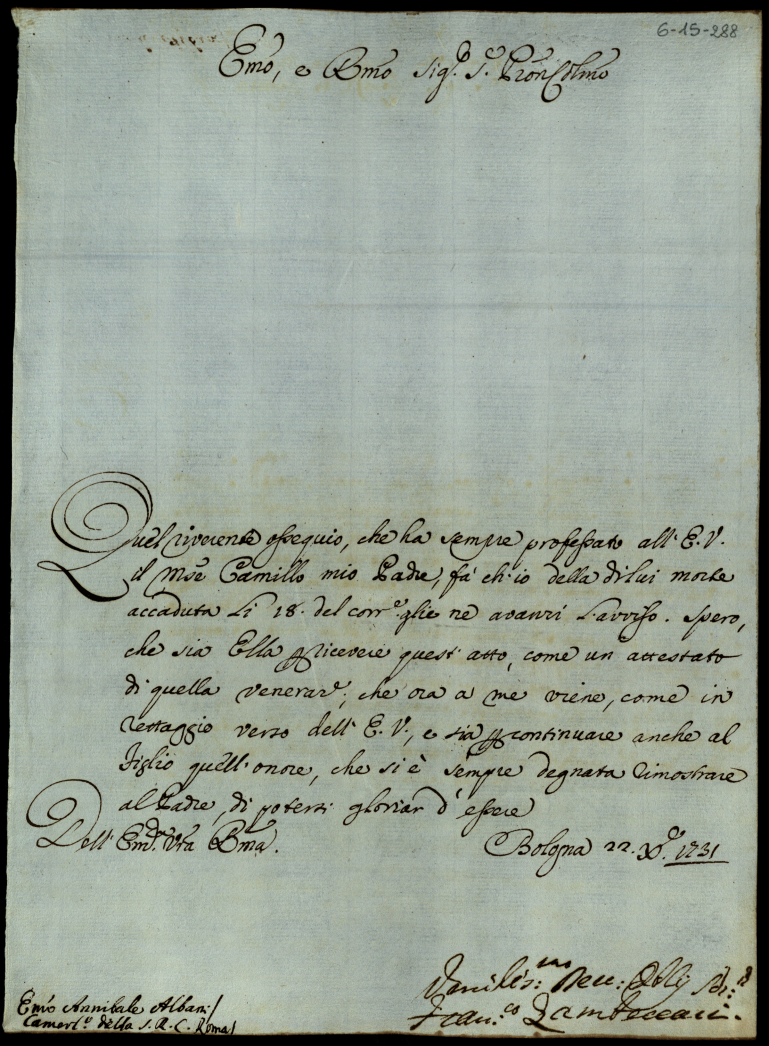 6-15-288
Emo, e Rmo Sigr. Sr. Pron Colmo
Quel riverente ossequio, che ha sempre professato all' E. V.
il Mse Camillo mio Padre, fà ch' io della di lui morte
accaduta li 18. del corre. glie ne avanzi l'avviso. Spero,
che sia Ella per ricevere quest' atto, come un attestato
di quella venerare., che ora a me viene, come in
rettaggio verso dell' E. V., e sia per continuare anche al
Figlio quell' onore, che si è sempre degnata dimostrare
al Padre, di potersi gloriar d' essere
Dell' Emza. Vra Rma.
Bologna 22. Xre. 1731
Emo Annibale Albani
Camerlo. della S. R. C. Roma
Vmilis:mo Dev: Obl:
Fran:co Zambeccari.